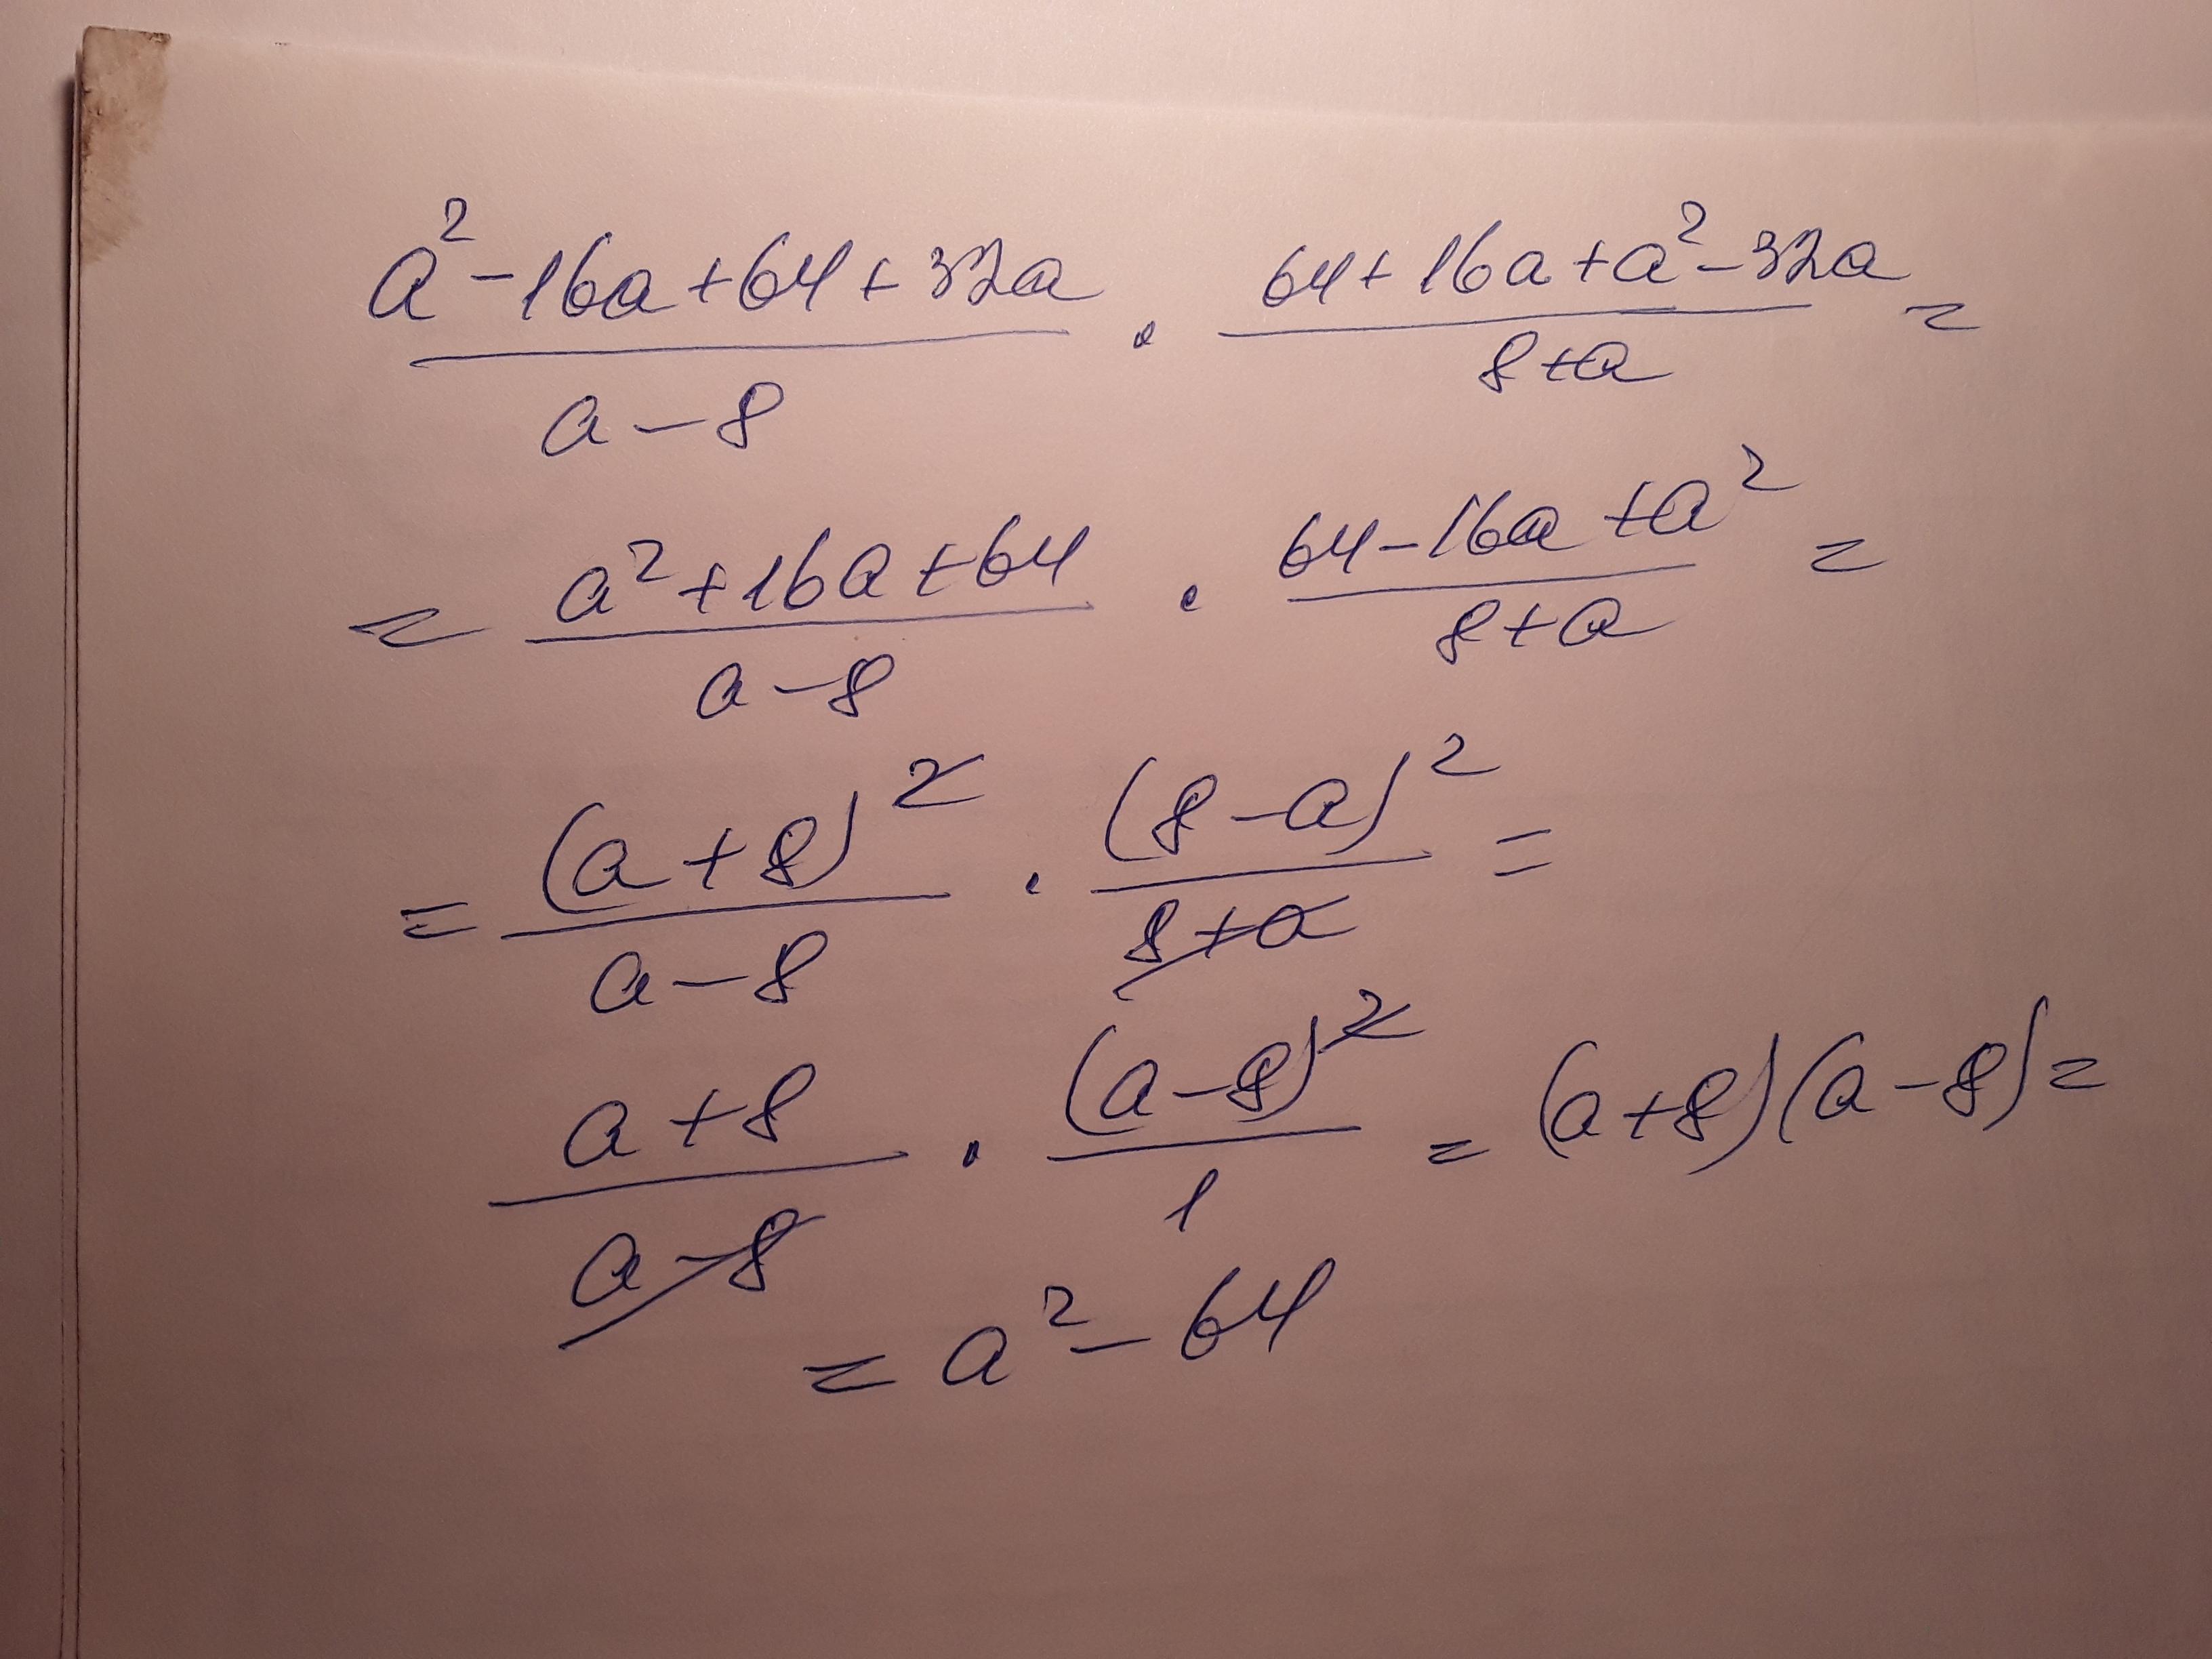 (a² - 16a + 64 + 32a)/(a - 8) · (64 + 16a + a² - 32a)/(8 + a) =
= (a² + 16a + 64)/(a - 8) · (64 - 16a + a²)/(8 + a) =
= (a + 8)²/(a - 8) · (8 - a)²/(8 + a) =
(a + 8)/(a - 8) · (a - 8)²/1 = (a + 8)(a - 8) =
= a² - 64